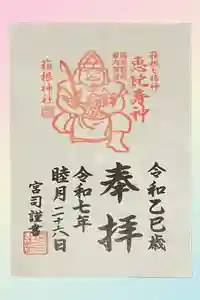 箱根七福神
恵比寿神
箱根神社
令和乙巳歳
奉拝
令和七年
睦月二十六日
宮司謹書